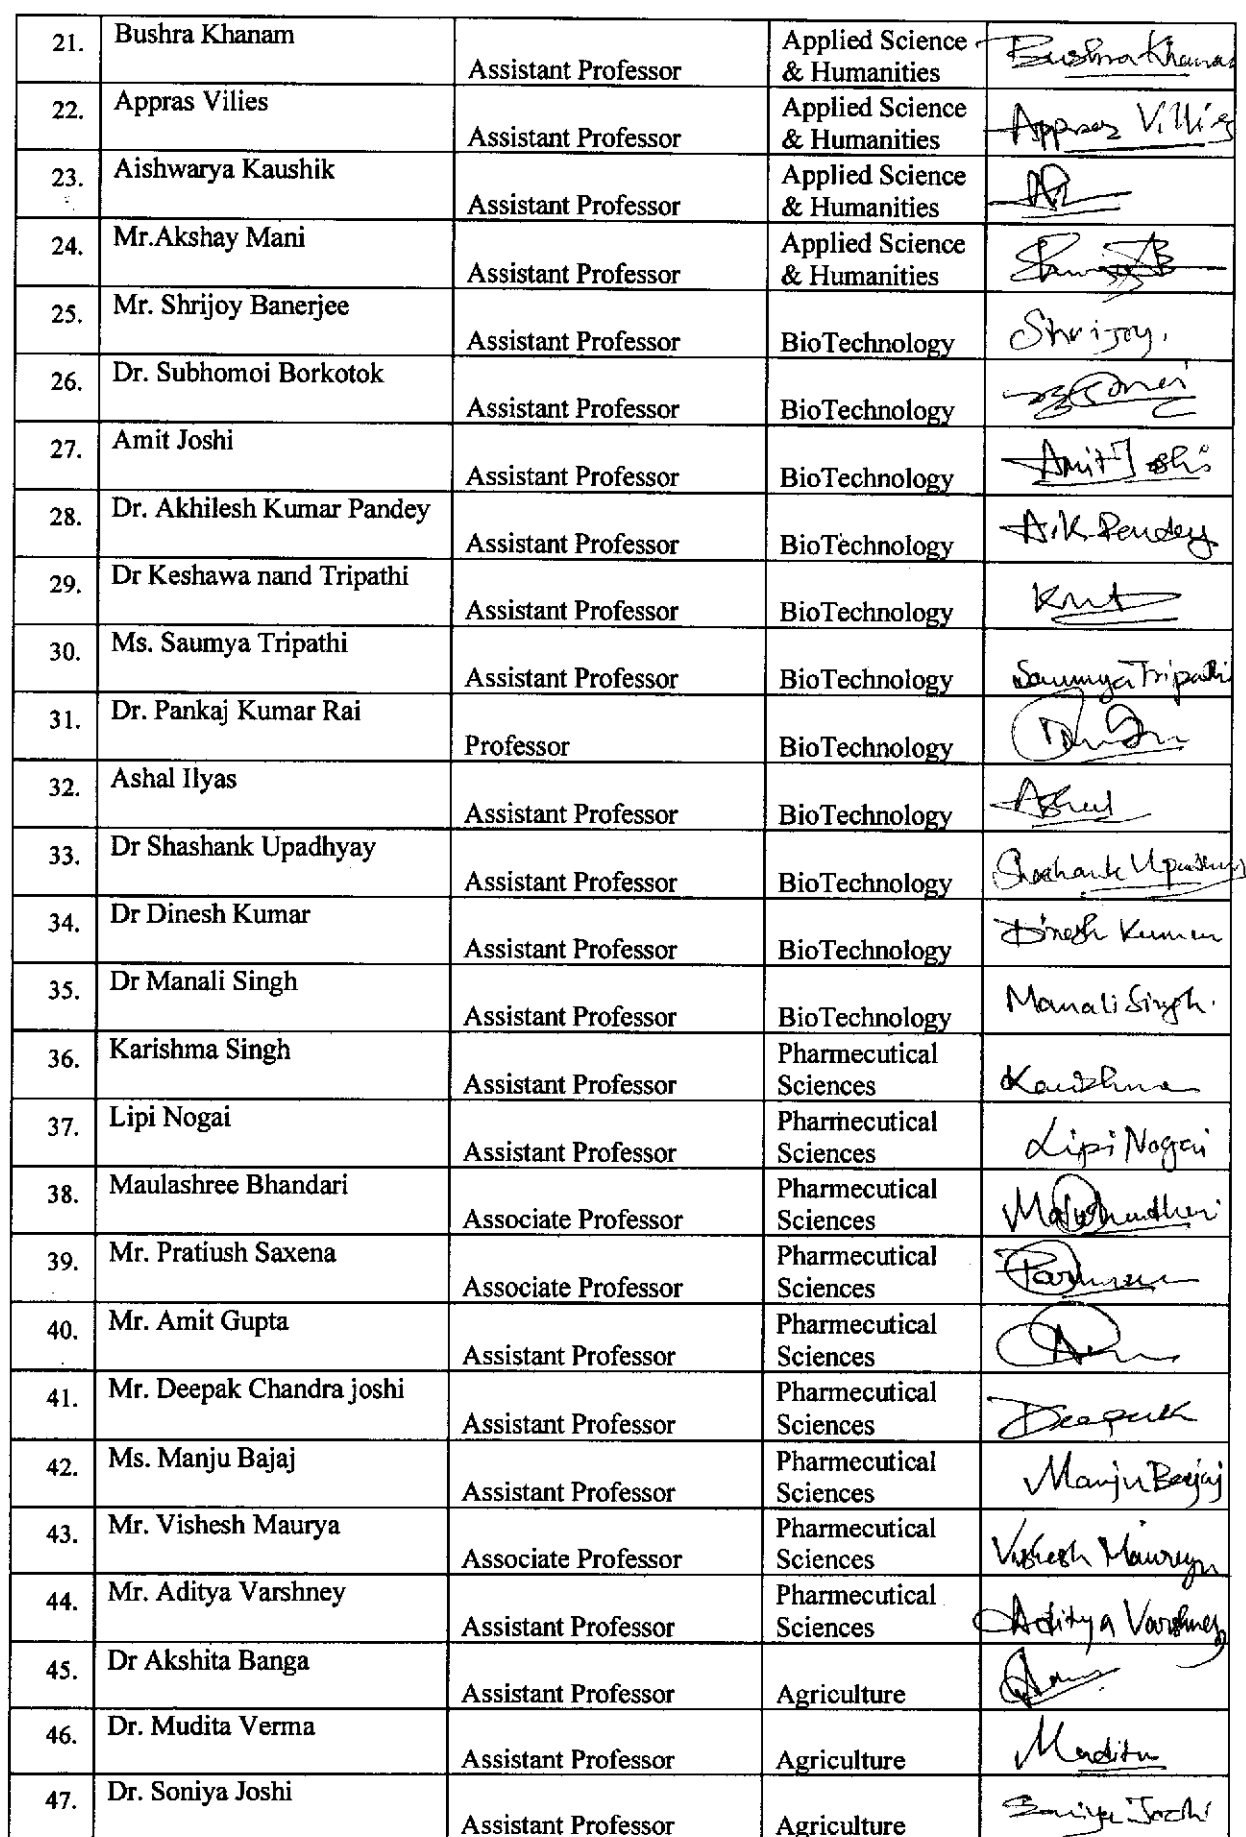 21. Bushra Khanam Assistant Professor Applied Science & Humanities Bushra Khanam
22. Appras Vilies Assistant Professor Applied Science & Humanities Appras Villies
23. Aishwarya Kaushik Assistant Professor Applied Science & Humanities
24. Mr.Akshay Mani Assistant Professor Applied Science & Humanities
25. Mr. Shrijoy Banerjee Assistant Professor BioTechnology Shrijoy.
26. Dr. Subhomoi Borkotok Assistant Professor BioTechnology
27. Amit Joshi Assistant Professor BioTechnology Amit Joshi
28. Dr. Akhilesh Kumar Pandey Assistant Professor BioTechnology A.K. Pandey
29. Dr Keshawa nand Tripathi Assistant Professor BioTechnology
30. Ms. Saumya Tripathi Assistant Professor BioTechnology Saumya Tripathi
31. Dr. Pankaj Kumar Rai Professor BioTechnology
32. Ashal Ilyas Assistant Professor BioTechnology Ashal
33. Dr Shashank Upadhyay Assistant Professor BioTechnology Shashank Upadhyay
34. Dr Dinesh Kumar Assistant Professor BioTechnology Dinesh Kumar
35. Dr Manali Singh Assistant Professor BioTechnology Manali Singh.
36. Karishma Singh Assistant Professor Pharmecutical Sciences Karishma
37. Lipi Nogai Assistant Professor Pharmecutical Sciences Lipi Nogai
38. Maulashree Bhandari Associate Professor Pharmecutical Sciences
39. Mr. Pratiush Saxena Associate Professor Pharmecutical Sciences
40. Mr. Amit Gupta Assistant Professor Pharmecutical Sciences
41. Mr. Deepak Chandra joshi Assistant Professor Pharmecutical Sciences Deepak
42. Ms. Manju Bajaj Assistant Professor Pharmecutical Sciences Manju Bajaj
43. Mr. Vishesh Maurya Associate Professor Pharmecutical Sciences Vishesh Maurya
44. Mr. Aditya Varshney Assistant Professor Pharmecutical Sciences Aditya Varshney
45. Dr Akshita Banga Assistant Professor Agriculture
46. Dr. Mudita Verma Assistant Professor Agriculture Mudita
47. Dr. Soniya Joshi Assistant Professor Agriculture Soniya Joshi